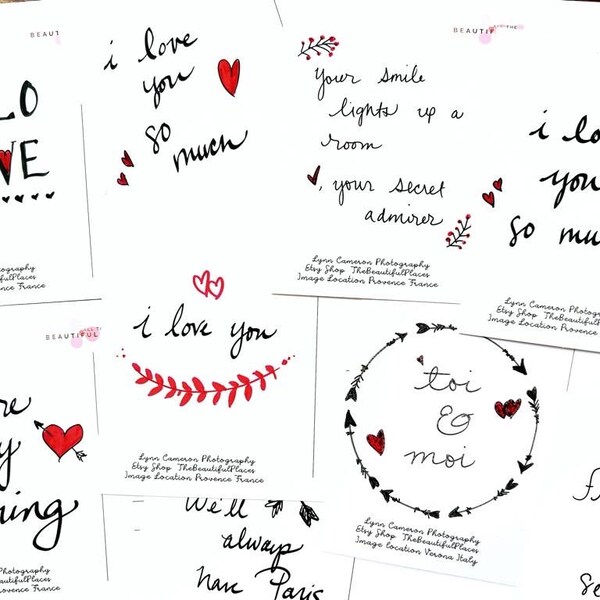 LO
VE
otography
utifulPlaces
rovence France
i love
you
so
much
BEAUTIF
your smile
lights up a
room
, your secret
admirer
Lynn Cameron Photography
Etsy Shop TheBeautifulPlaces
Image Location Provence France
i lo
you
so mu
Lynn Cameron Photogra
Etsy Shop TheBeautifulP
Image Location Provence F
BEAUTIFUL
re
y
hing
otography
utifulPlaces
rovence France
i love you
Lynn Cameron Photography
Etsy Shop TheBeautifulPlaces
Image Location Provence France
toi
&
moi
Lynn Cameron Photography
Etsy Shop TheBeautifulPlaces
Image Location Verona Italy
We'll
always
have Paris